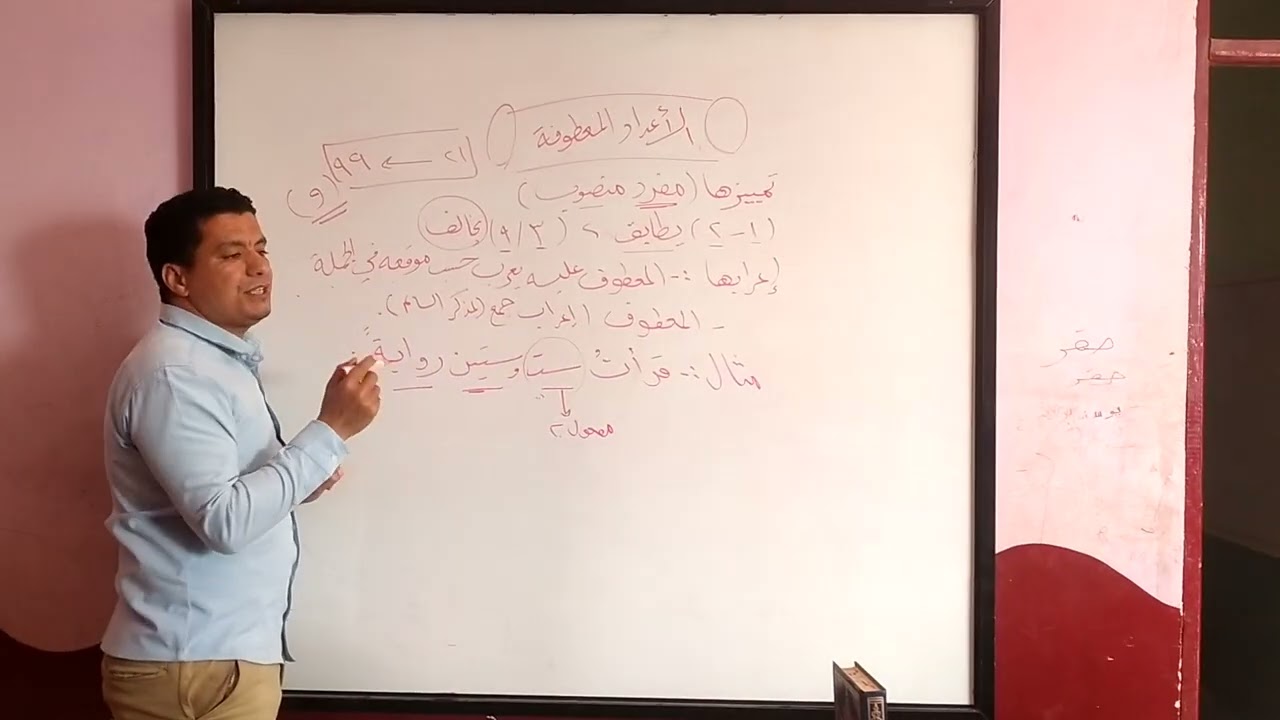 الأعداد المعطوفة
٢١ ← ٩٩ (و)
تمييزها (مفرد منصوب)
(١-٢) يطابق > (٣/٩) يخالف
إعرابها :- المعطوف عليه يعرب حسب موقعه في الجملة
- المعطوف إعراب جمع (المذكر السالم).
مثال :- قرأتُ ستا وستين روايةً
مفعول به
صقر
صقر